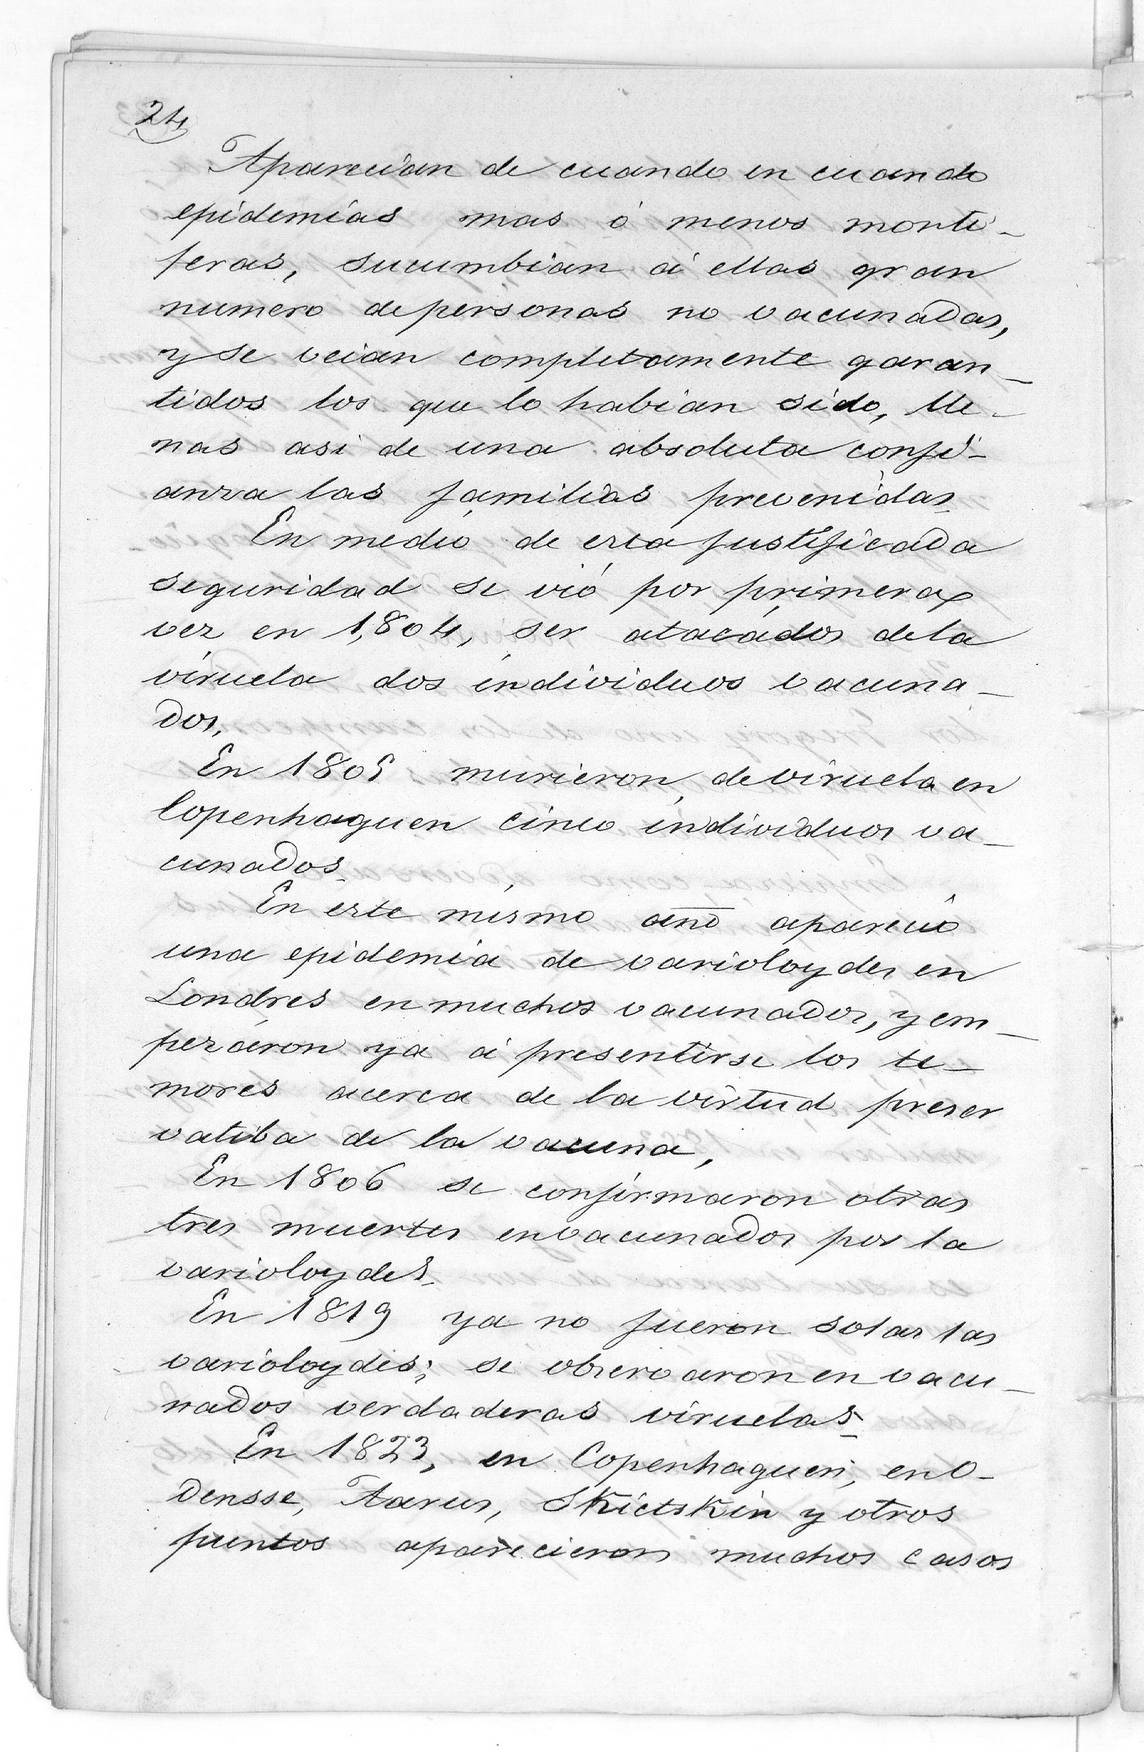 24
Aparecian de cuando en cuando
epidemias mas ó menos morti-
feras, sucumbian á ellas gran
numero de personas no vacunadas,
y se veian completamente garan-
tidos los que lo habian sido, lle-
nas asi de una absoluta confi-
anza las familias prevenidas.
En medio de esta justificada
seguridad se vió por primera
vez en 1,804, ser atacádos de la
viruela dos individuos vacuna-
dos.
En 1805 murieron de viruela en
Copenhaguen cinco individuos va-
cunados.
En este mismo año apareció
una epidemia de varioloydes en
Londres en muchos vacunados, y em-
pezáron ya á presentirse los te-
mores acerca de la virtud preser
vatiba de la vacuna,
En 1806 se confirmaron otras
tres muertes en vacunados por la
varioloydes.
En 1819 ya no fueron solas las
varioloydes; se observaron en vacu-
nados verdaderas viruelas.
En 1823, en Copenhaguen, en O-
densse, Aarus, Skictskin y otros
puntos aparecieron muchos casos